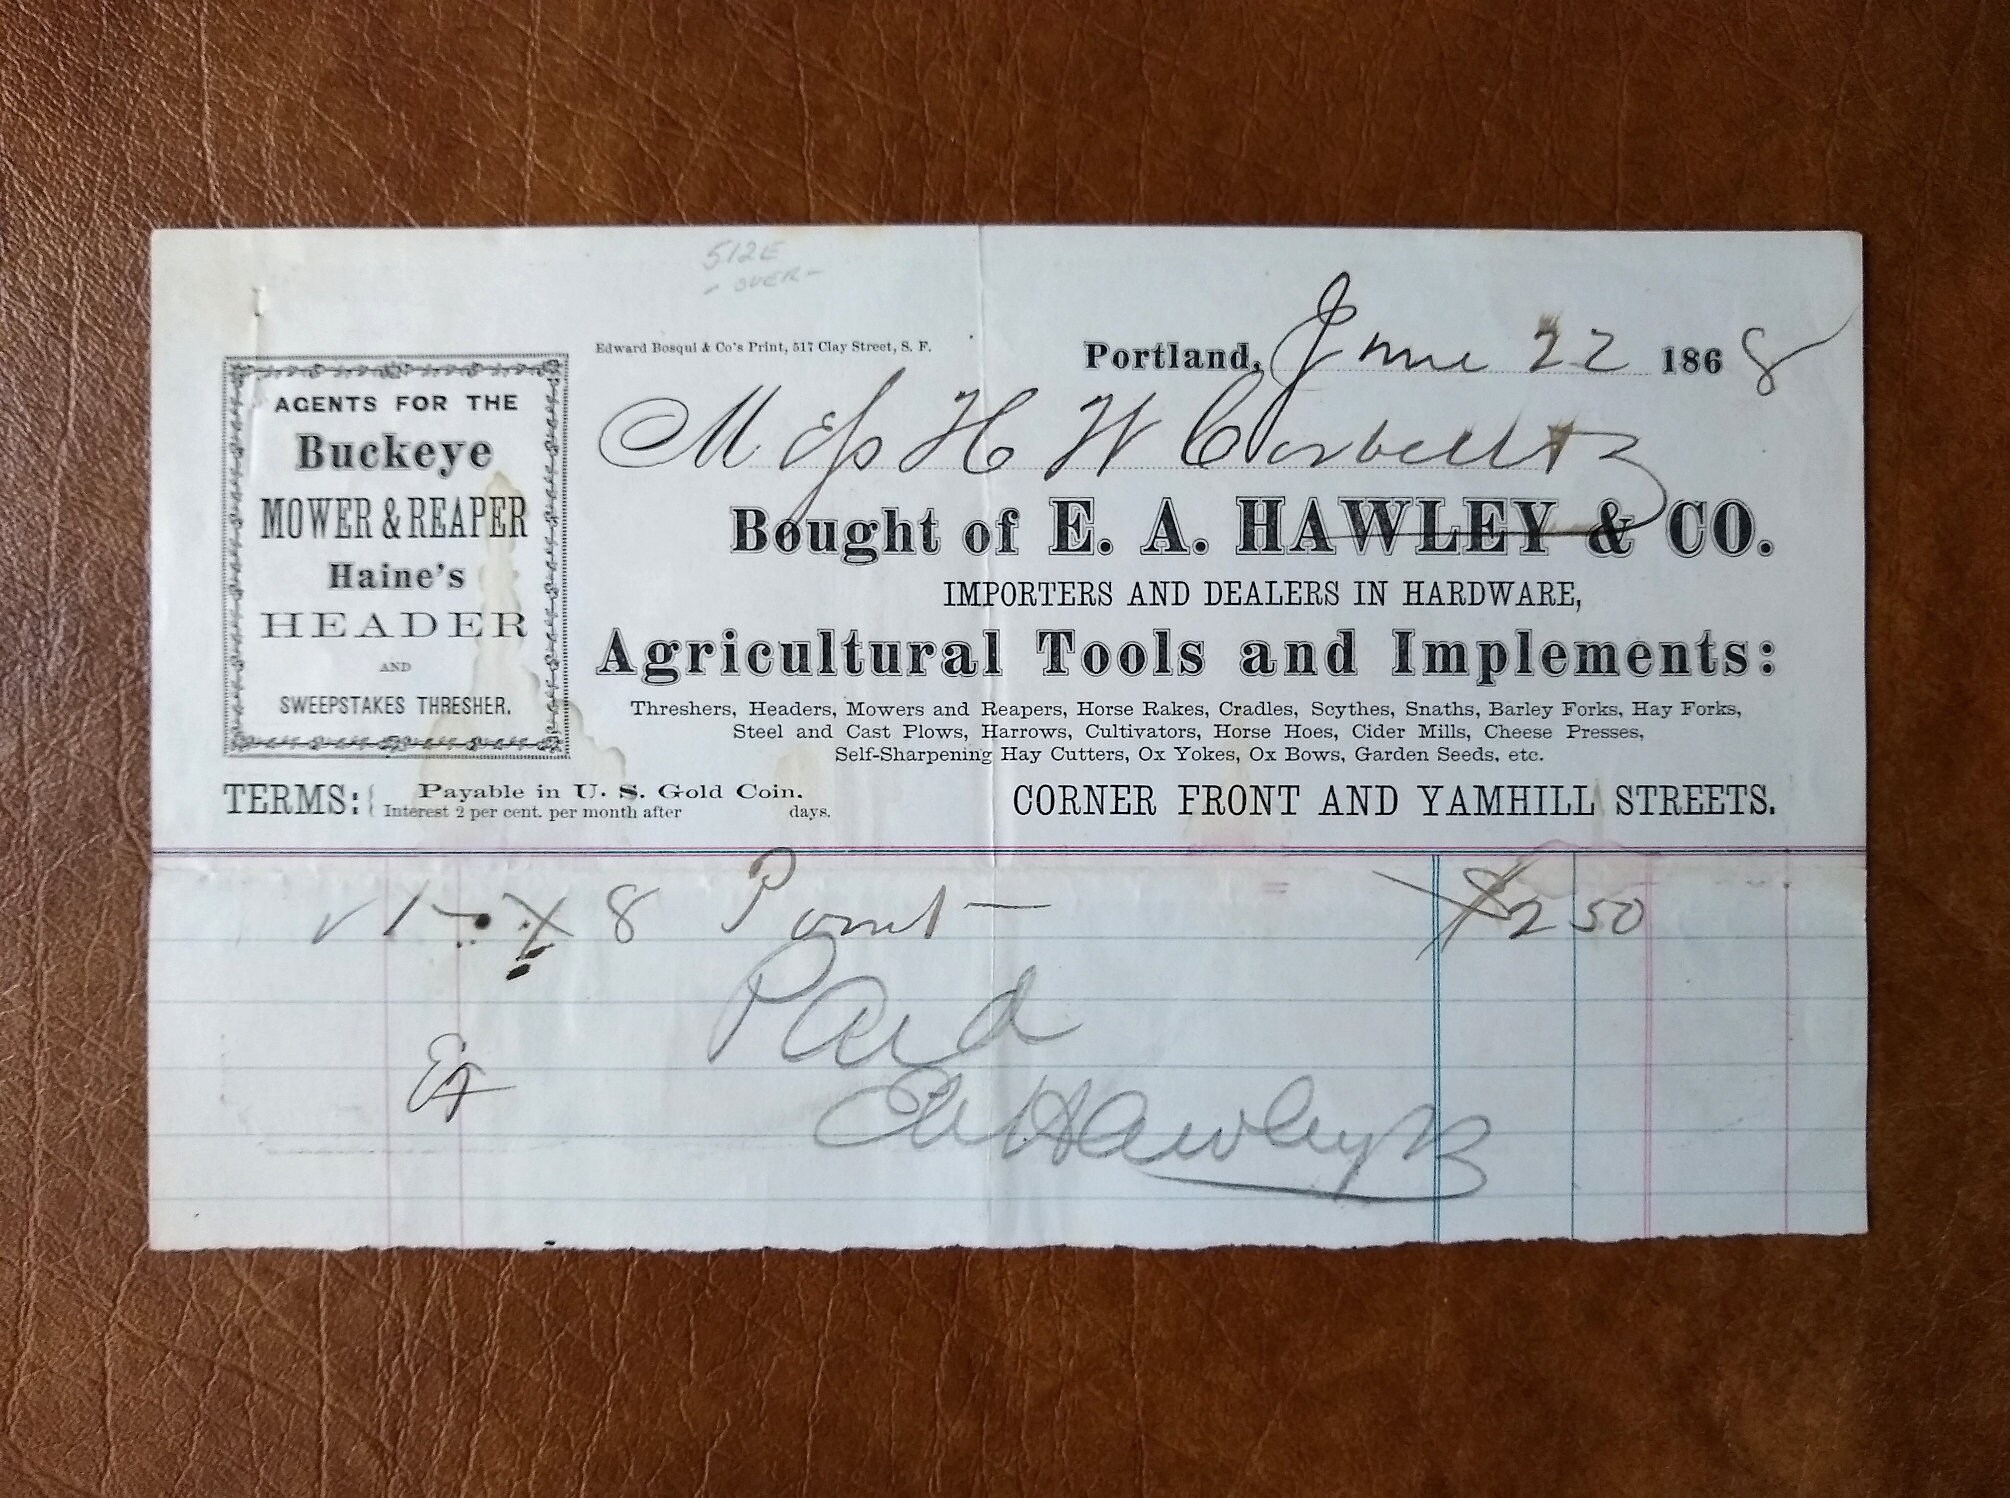 512E
- OVER -
Edward Bosqui & Co's Print, 517 Clay Street, S. F.
Portland, June 22 1868
AGENTS FOR THE
Buckeye
MOWER & REAPER
Haine's
HEADER
AND
SWEEPSTAKES THRESHER.
H W Corbett
Bought of E. A. HAWLEY & CO.
IMPORTERS AND DEALERS IN HARDWARE,
Agricultural Tools and Implements:
Threshers, Headers, Mowers and Reapers, Horse Rakes, Cradles, Scythes, Snaths, Barley Forks, Hay Forks,
Steel and Cast Plows, Harrows, Cultivators, Horse Hoes, Cider Mills, Cheese Presses,
Self-Sharpening Hay Cutters, Ox Yokes, Ox Bows, Garden Seeds, etc.
TERMS: { Payable in U. S. Gold Coin.
Interest 2 per cent. per month after days.
CORNER FRONT AND YAMHILL STREETS.
1 X 8 Point $2 50
Paid
Hawley